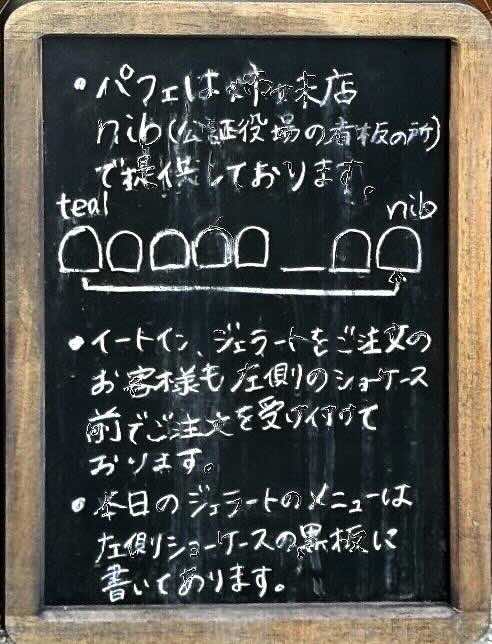 ・パフェは姉妹店
nib(公証役場の看板の所)
で提供しております。
teal nib
・イートイン、ジェラートをご注文の
お客様も左側のショーケース
前でご注文を受け付けて
おります。
・本日のジェラートのメニューは
左側ショーケースの黒板に
書いてあります。